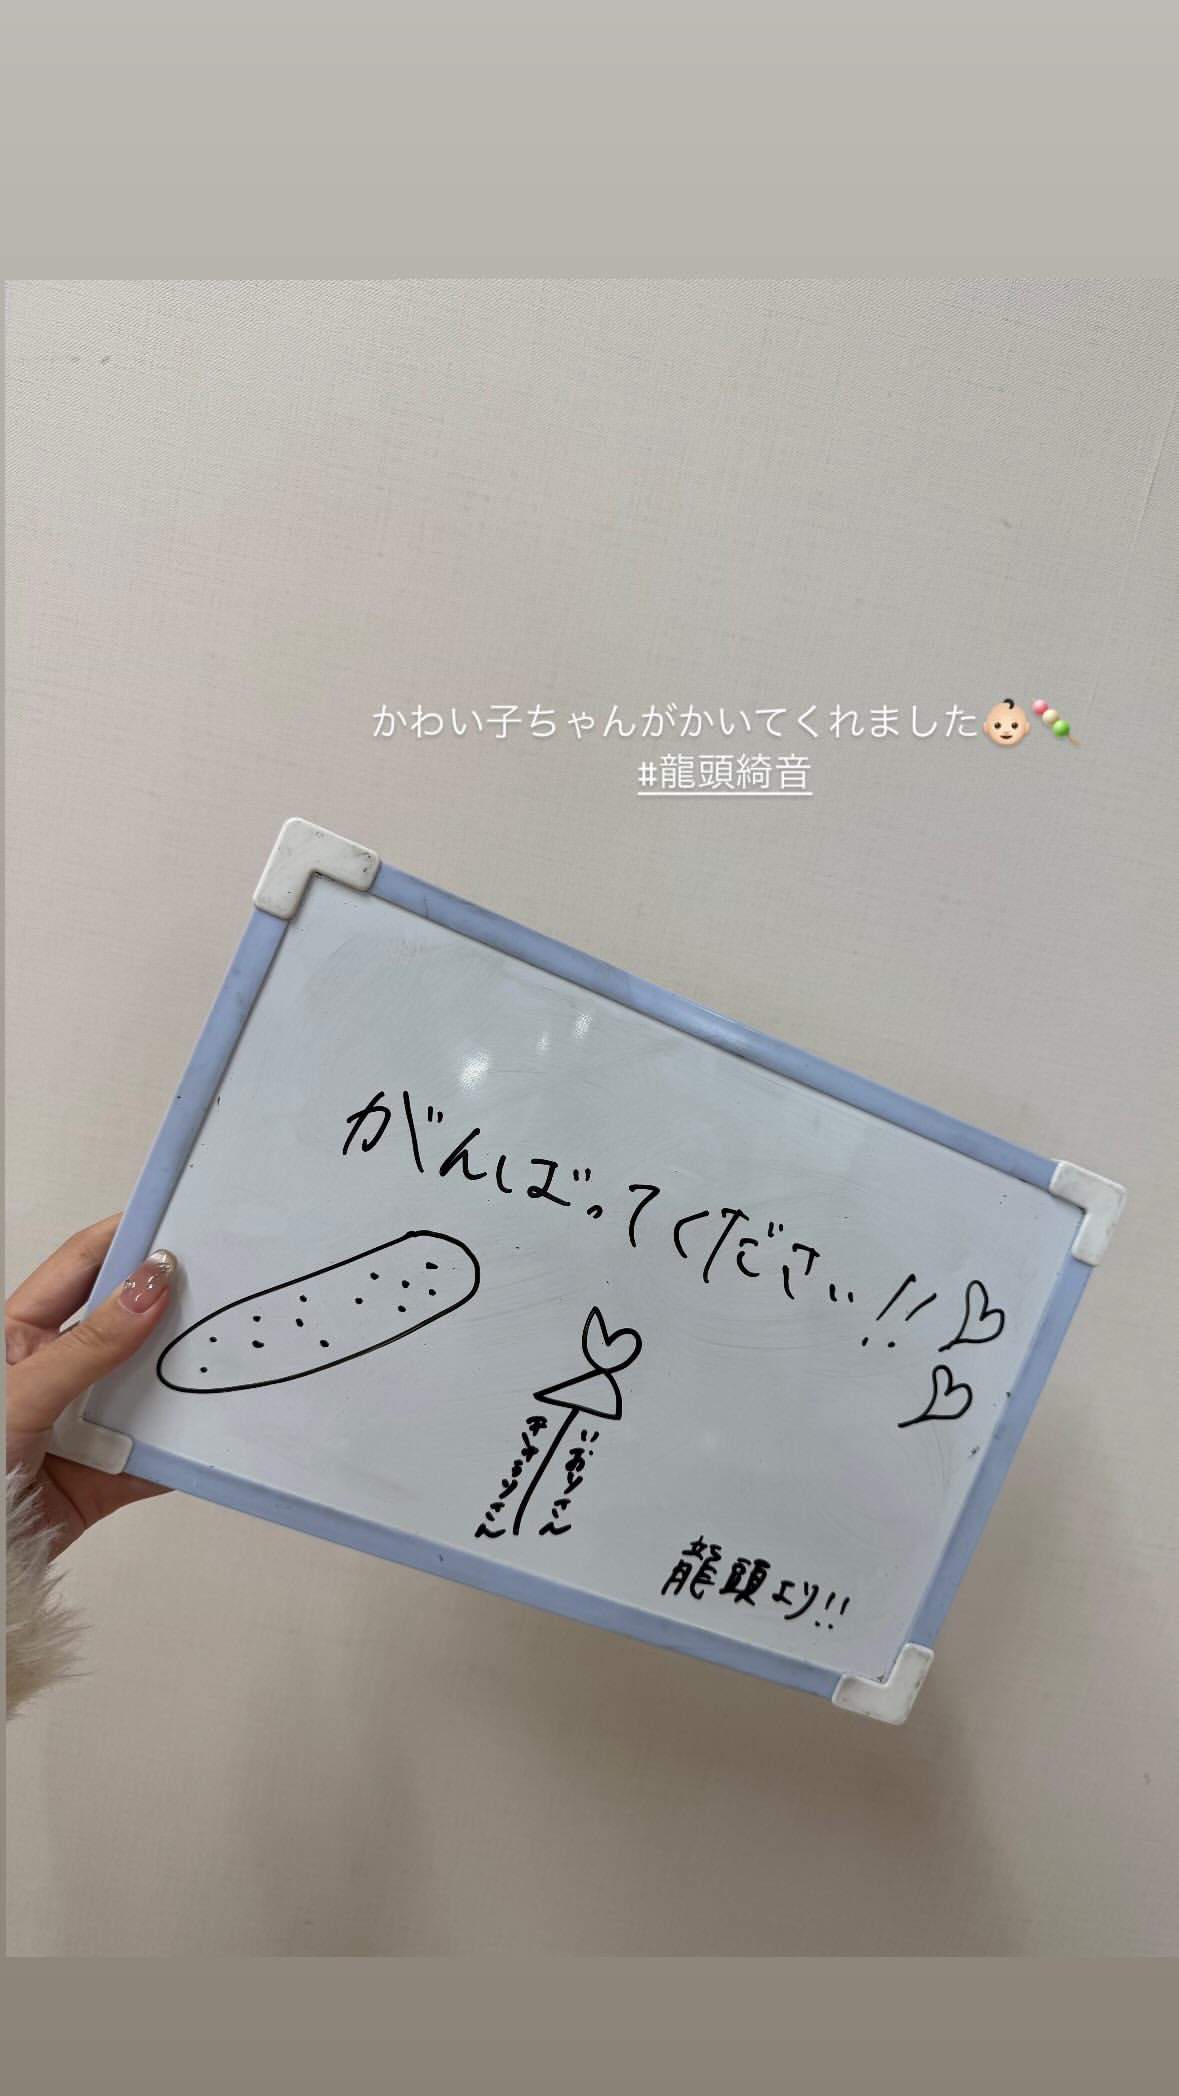 かわい子ちゃんがかいてくれました👶🏻🍡
#龍頭綺音
がんばってください!!
いおりさん
きゅうりさん
龍頭より!!